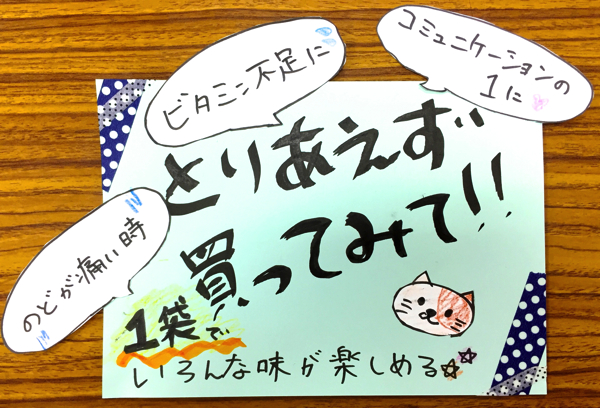 コミュニケーションの
1に
ビタミン不足に
のどが痛い時
とりあえず
買ってみて!!
1袋で
いろんな味が楽しめる☆☆